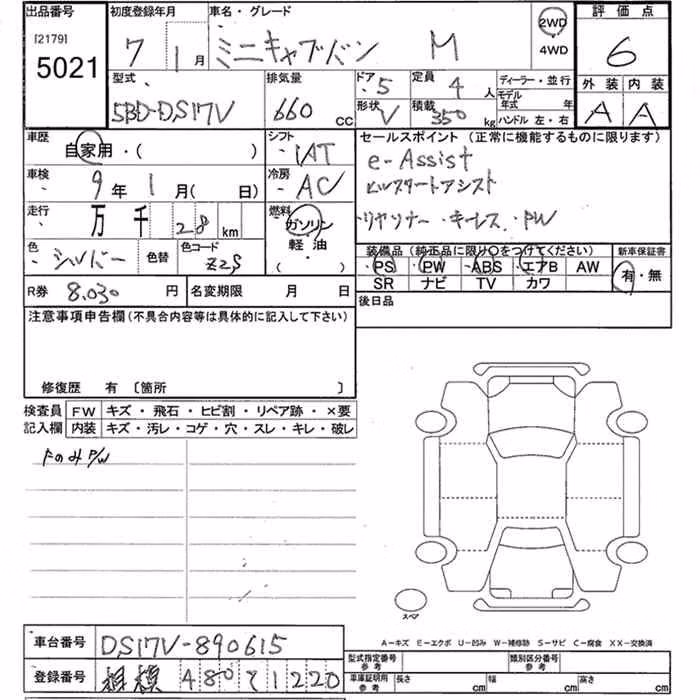 出品番号 初度登録年月 車名・グレード 2WD 4WD 評価点
[2179] 5021 7 1月 ミニキャブバン M 6
外装 内装
A A
型式 排気量 ドア 5 定員 4人 ディーラー・並行
5BD-DS17V 660 CC 形状 V 積載 350 kg モデル年式 年
ハンドル 左・右
車歴 シフト セールスポイント (正常に機能するものに限ります)
自家用・( ) IAT e-Assist
車検 9年 1月( 日) 冷房 AC ヒルスタートアシスト
走行 万 千 28 km 燃料 ガソリン リヤソナー・キーレス・PW
軽油
( )
色 シルバー 色替 色コード Z2S
装備品 (純正品に限り○をつけてください) 新車保証書
・PS ・PW ・ABS ・エアB AW 有・無
SR ナビ TV カワ
R券 8.030 円 名変期限 月 日 後日品
注意事項申告欄(不具合内容等は具体的に記入して下さい)
修復歴 有 〔箇所 〕
検査員 FW キズ・飛石・ヒビ割・リペア跡・×要
記入欄 内装 キズ・汚レ・コゲ・穴・スレ・キレ・破レ
FのみP/W
スペア
A-キズ E-エクボ U-凹み W-補修跡 S-サビ C-腐食 XX-交換済
車台番号 DS17V-890615
型式指定番号 参考 類別区分番号 参考
登録番号 相模 480 そ 1220
車庫証明用 参考 長さ cm 幅 cm 高さ cm